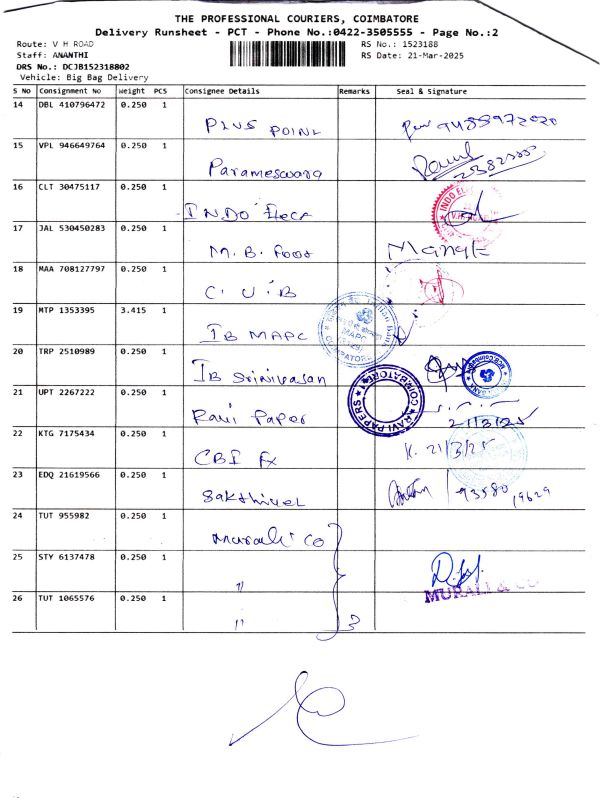 THE PROFESSIONAL COURIERS, COIMBATORE
Delivery Runsheet - PCT - Phone No.:0422-3505555 - Page No.:2
Route: V H ROAD
RS No.: 1523188
Staff: ANANTHI
RS Date: 21-Mar-2025
DRS No.: DCJB152318802
Vehicle: Big Bag Delivery
S No Consignment No Weight PCS Consignee Details Remarks Seal & Signature
14 DBL 410796472 0.250 1
PLUS POINT
15 VPL 946649764 0.250 1
Parameswara
16 CLT 30475117 0.250 1
INDO Elecr
17 JAL 530450283 0.250 1
M. B. Foor
18 MAA 708127797 0.250 1
C. U. B
19 MTP 1353395 3.415 1
IB MAPC
20 TRP 2510989 0.250 1
IB Srinivasan
21 UPT 2267222 0.250 1
Ravi Paper 21/3/25
RAVI PAPERS COIMBATORE
22 KTG 7175434 0.250 1
CBI Fx K. 21/3/25
23 EDQ 21619566 0.250 1
Sakthivel 93580 19629
24 TUT 955982 0.250 1
Murali Co
25 STY 6137478 0.250 1
"
MURALI & CO
26 TUT 1065576 0.250 1
" 3